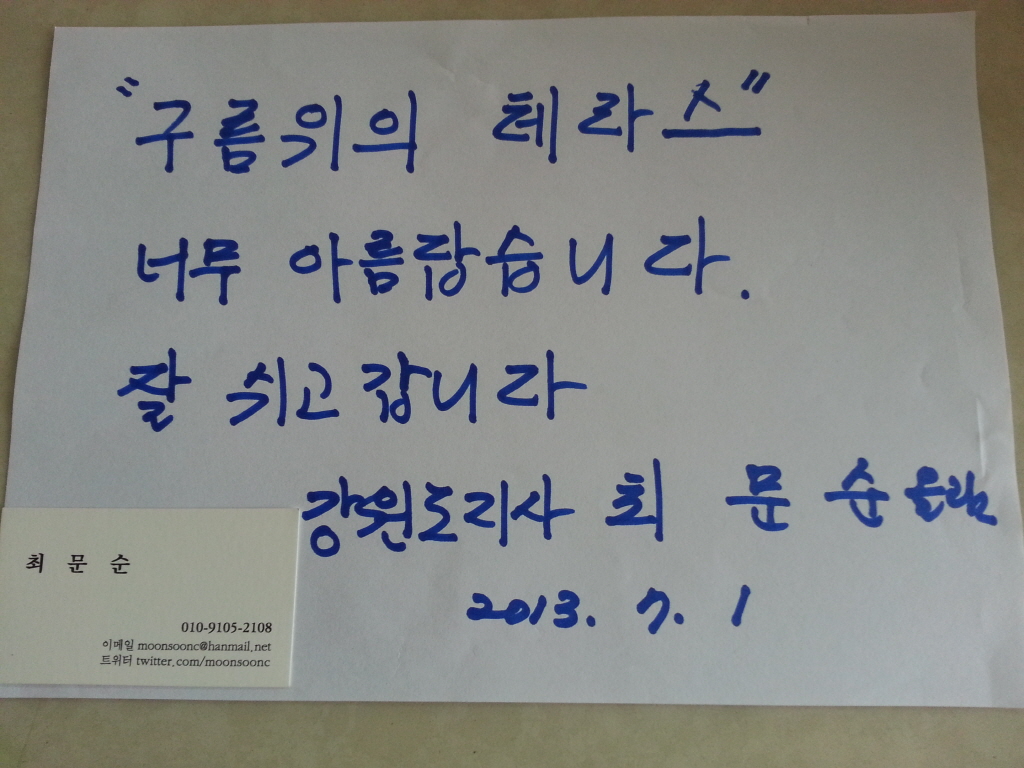 "구름위의 테라스"
너무 아름답습니다.
잘 쉬고 갑니다
강원도지사 최 문 순 올림
2013. 7. 1
최 문 순
010-9105-2108
이메일 moonsoonc@hanmail.net
트위터 twitter.com/moonsoonc